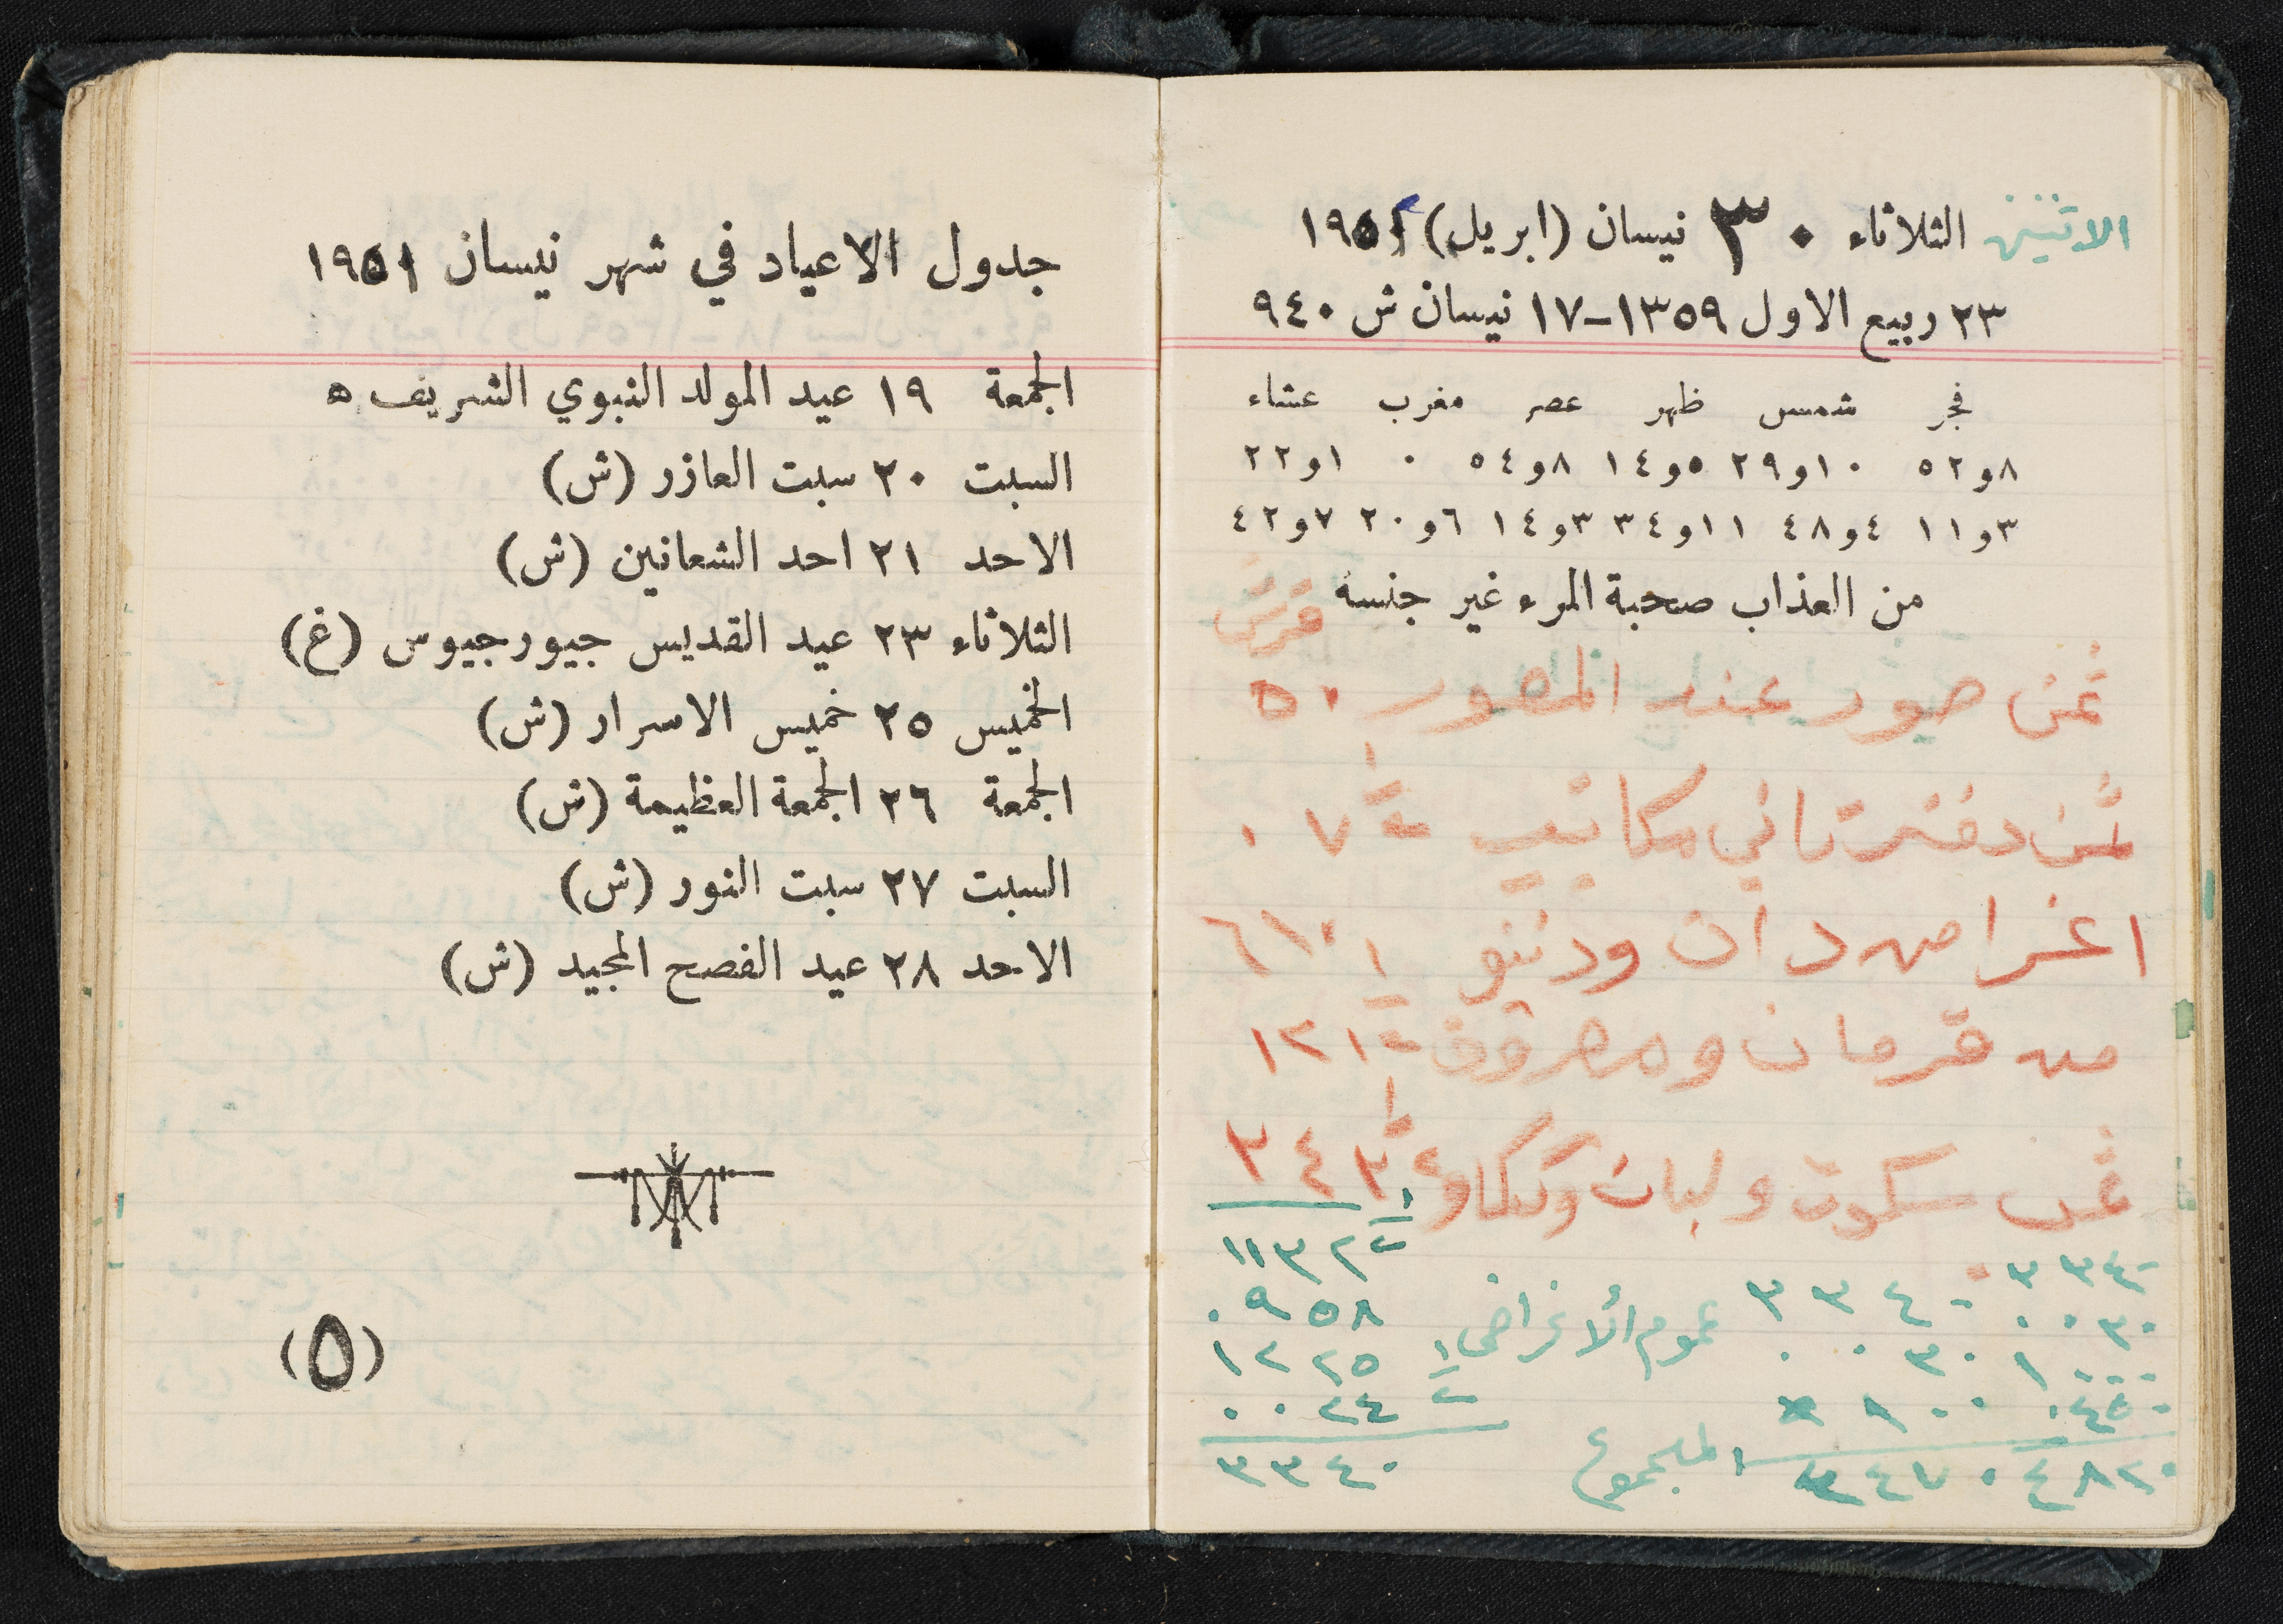 الاثنين الثلاثاء ٣٠ نيسان (ابريل) ١٩٥١
٢٣ ربيع الاول ١٣٥٩-١٧ نيسان ش ٩٤٠
فجر شمس ظهر عصر مغرب عشاء
٨و٥٢ ١٠و٢٩ ٥و١٤ ٨و٥٤ ٠ ١و٢٢
٣و١١ ٤و٤٨ ١١و٣٤ ٣و١٤ ٦و٢٠ ٧و٤٢
من العذاب صحبة المرء غير جنسه
قرش
ثمن صور عند المصور ٥٠
ثمن دفتر ثاني مكاتيب ٠٧
اغراض دان ودننو ٦١٠
من قرمان ومصروف ١٢١
ثمن سكوت ولبان وككاو ٣٤٣
١١٣٢
٠٩٥٨
١٢٢٥
٠٠٢٤
٣٣٤٠
عموم الأغراض ٣٣٤٠
٠٠٣٠
المجموع
٣٣٤٠
٠٠٣٠
١٠٠٠
٠٤٥٠
٤٨٢٠
جدول الاعياد في شهر نيسان ١٩٥١
الجمعة ١٩ عيد المولد النبوي الشريف ٥
السبت ٢٠ سبت العازر (ش)
الاحد ٢١ احد الشعانين (ش)
الثلاثاء ٢٣ عيد القديس جيورجيوس (غ)
الخميس ٢٥ خميس الاسرار (ش)
الجمعة ٢٦ الجمعة العظيمة (ش)
السبت ٢٧ سبت النور (ش)
الاحد ٢٨ عيد الفصح المجيد (ش)
(٥)